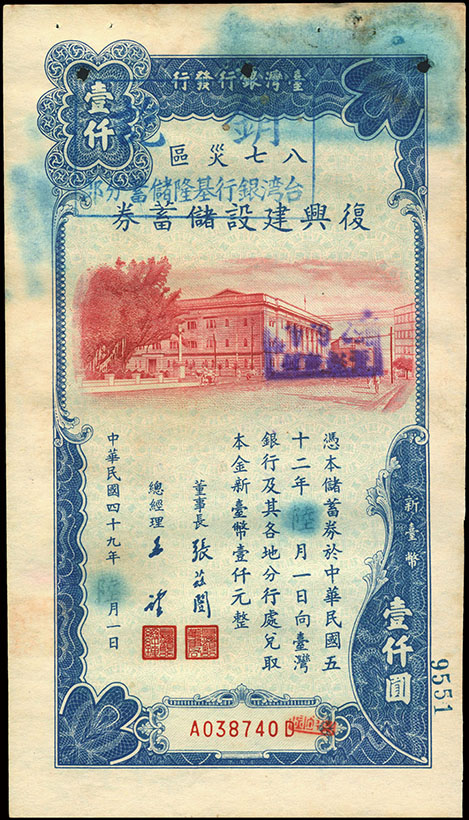 臺灣銀行發行
壹仟
銷
八七災區
台湾銀行基隆儲蓄分部
復興建設儲蓄券
憑本儲蓄券於中華民國五
十二年陸月一日向臺灣
銀行及其各地分行處兌取
本金新臺幣壹仟元整
董事長 張茲闓
總經理 王鍾
中華民國四十九年陸月一日
新臺幣
壹仟圓
9551
A038740D